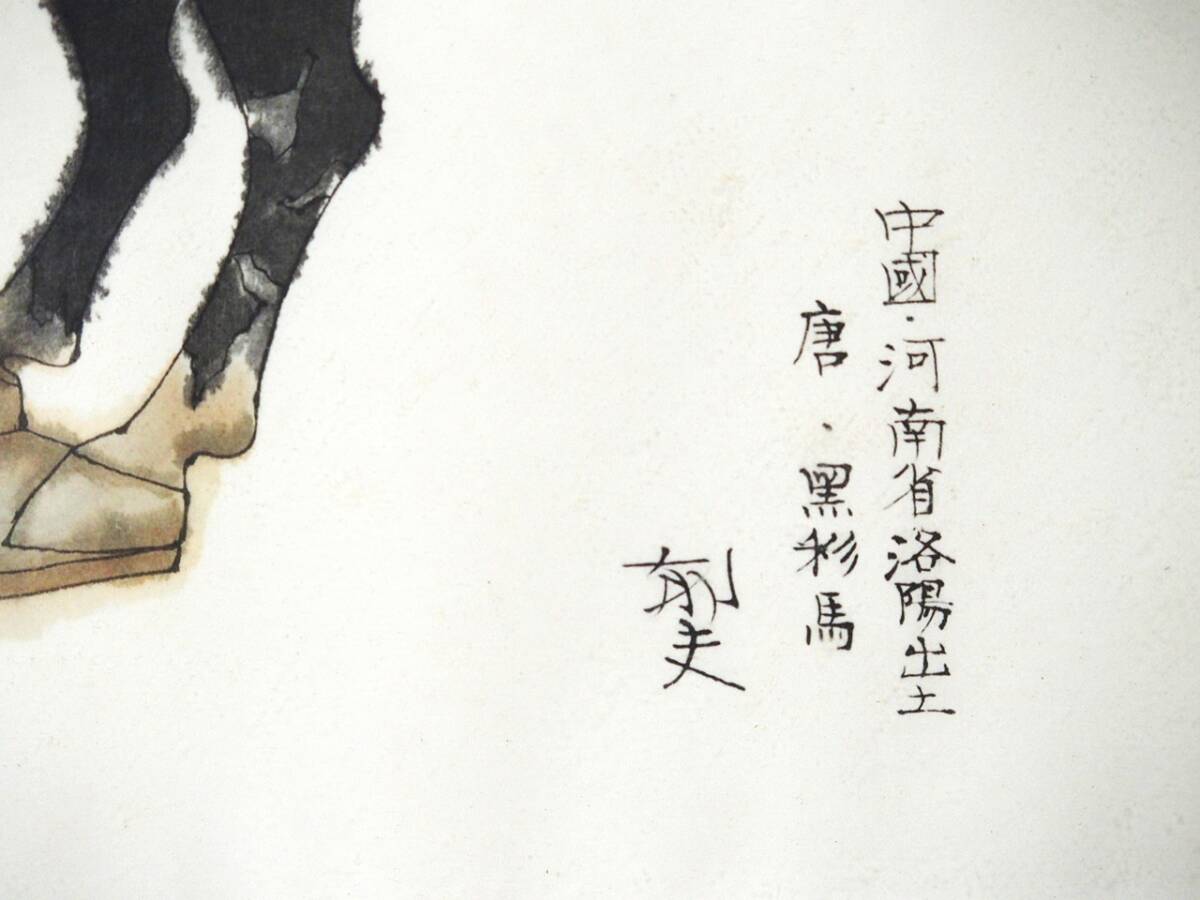 中國·河南省洛陽出土
唐·黑彩馬
夫